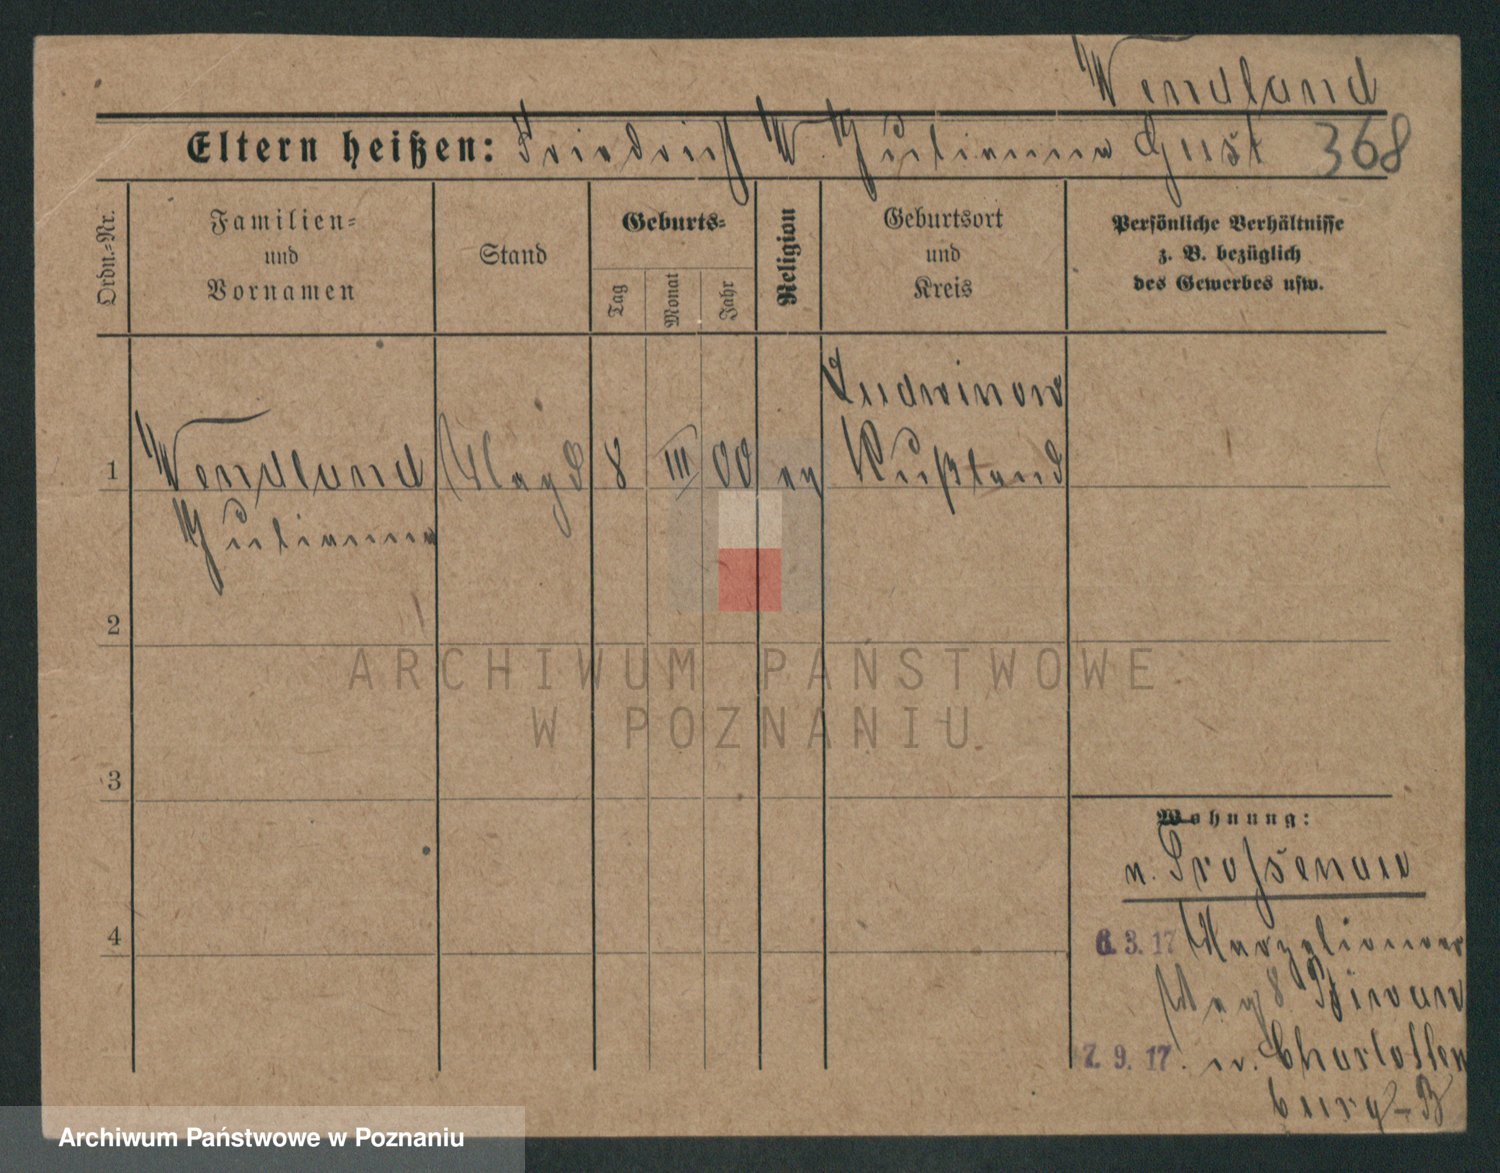 Wendland
Eltern heißen: Friedrich W. Julianna Gust 368
Ordn.-Nr.
Familien- und Vornamen
Stand
Geburts-
Tag
Monat
Jahr
Religion
Geburtsort und Kreis
Persönliche Verhältnisse
z. B. bezüglich
des Gewerbes usw.
Ludwinow
1 Wendland Magd 8 III 00 ev Rußland
Julianna
2
3
4
Wohnung:
n.
6.3.17
Weg 8
7.9.17. n. Charlotten
burg-B
ARCHIWUM PAŃSTWOWE
W POZNANIU
Archiwum Państwowe w Poznaniu